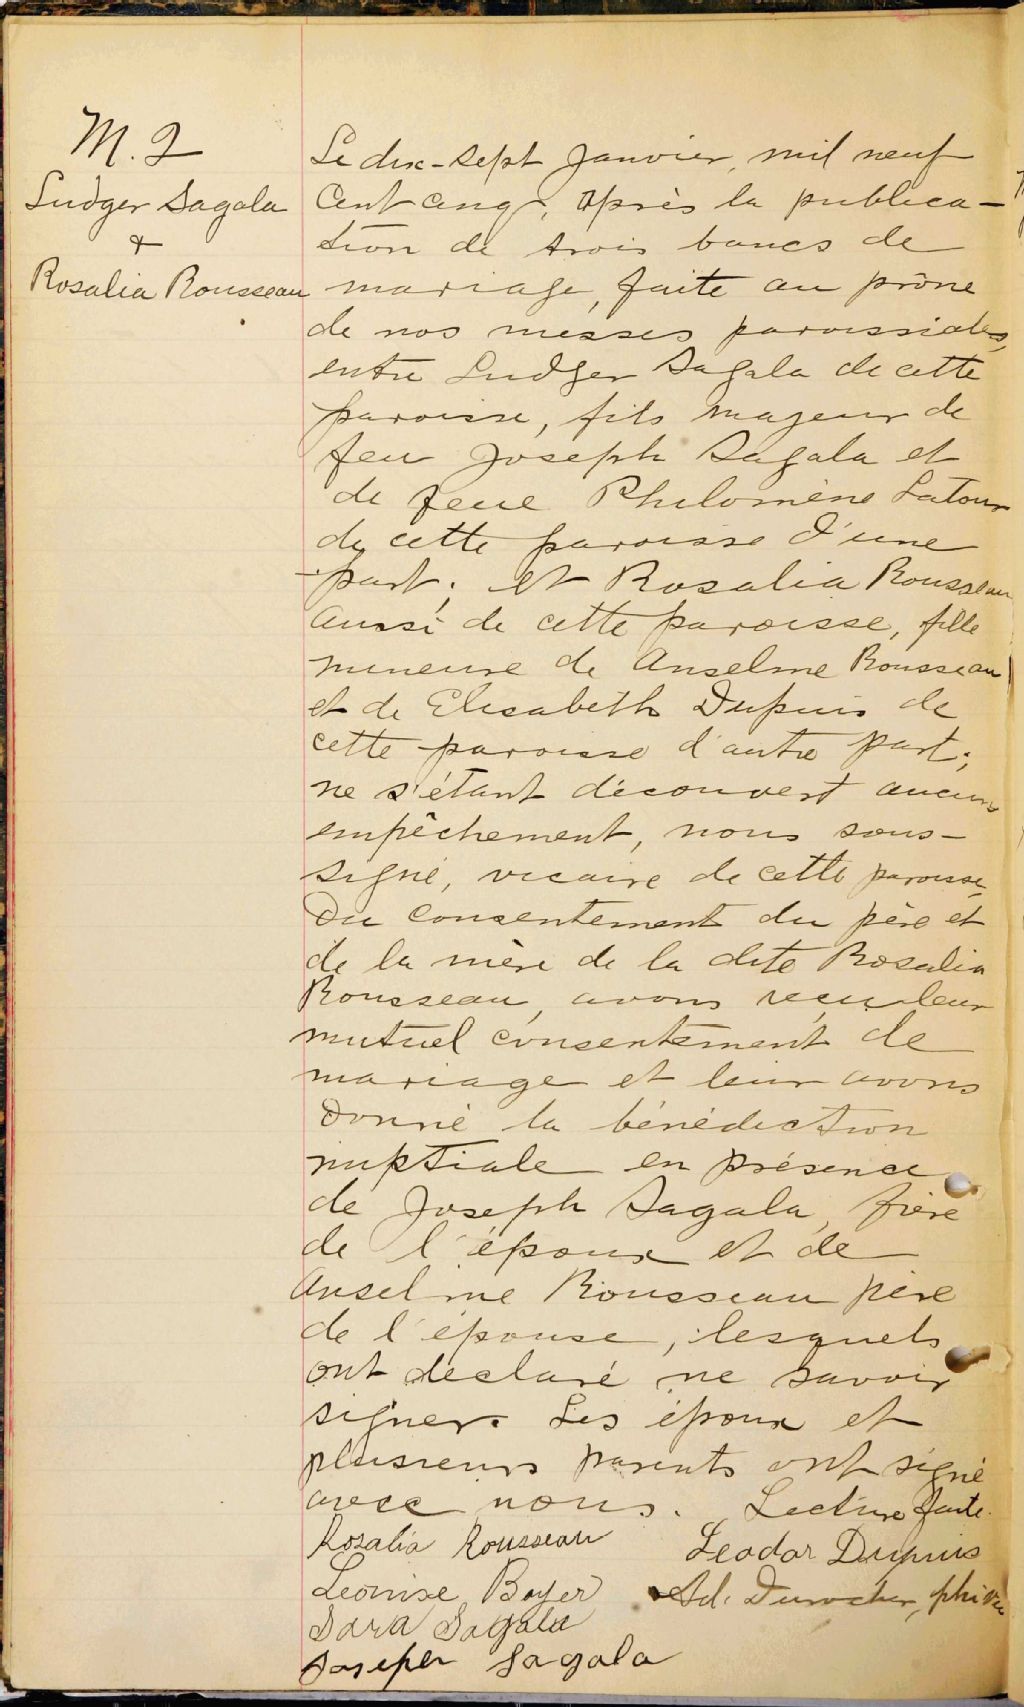 M. 2
Ludger Sagala
+
Rosalia Rousseau
Le dix-sept Janvier, mil neuf
Cent cinq, après la publica-
tion de trois bancs de
mariage, faite au prône
de nos messes paroissiales,
entre Ludger Sagala de cette
paroisse, fils majeur de
feu Joseph Sagala et
de feue Philomène Latour
de cette paroisse d'une
part; et Rosalia Rousseau
aussi de cette paroisse, fille
mineure de Anselme Rousseau
et de Elisabeth Dupuis de
cette paroisse d'autre part;
ne s'étant découvert aucun
empêchement, nous sous-
signé, vicaire de cette paroisse,
Du consentement du père et
de la mère de la dite Rosalia
Rousseau, avons reçu leur
mutuel consentement de
mariage et leur avons
donné la bénédiction
nuptiale en présence
de Joseph Sagala, frère
de l'époux et de
Anselme Rousseau père
de l'épouse, lesquels
ont déclaré ne savoir
signer. Les époux et
plusieurs parents ont signé
avec nous. Lecture faite.
Rosalia Rousseau Leodor Dupuis
Leonise Boyer Ad. Durocher, ptre vic
Sara Sagala
Joseph Sagala